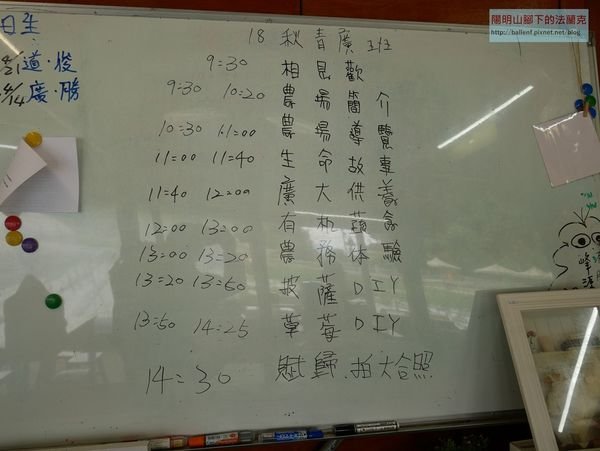 陽明山腳下的法蘭克
http://ballenf.pixnet.net/blog
日生
4/21道·俊
8/14廣·勝
18秋青廣班
9:30 相見歡
9:30 10:20 農場簡介
10:30 11:00 農場導覽
11:00 11:40 生命故事
11:40 12:00 廣大供養
12:00 13:00 有机蔬食
13:00 13:20 農務体驗
13:20 13:50 披薩DIY
13:50 14:25 草莓DIY
14:30 賦歸.拍大合照